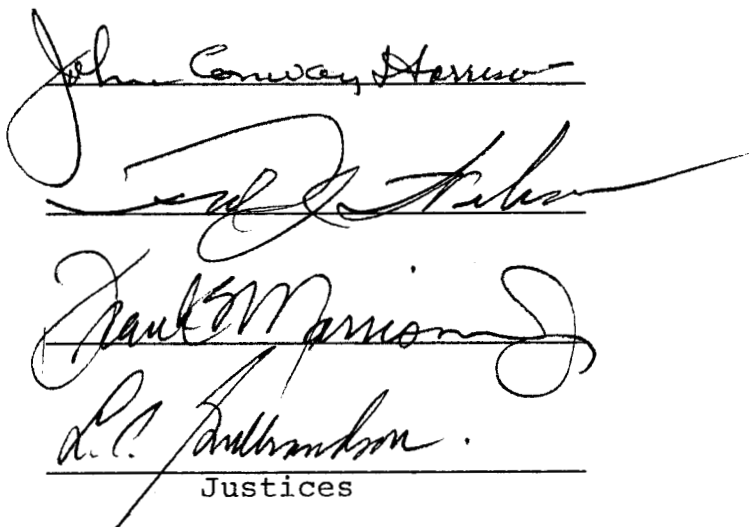 John Conway Harrison
Fred J. Weber
Frank B. Morrison Jr.
L.C. Gulbrandson.
Justices